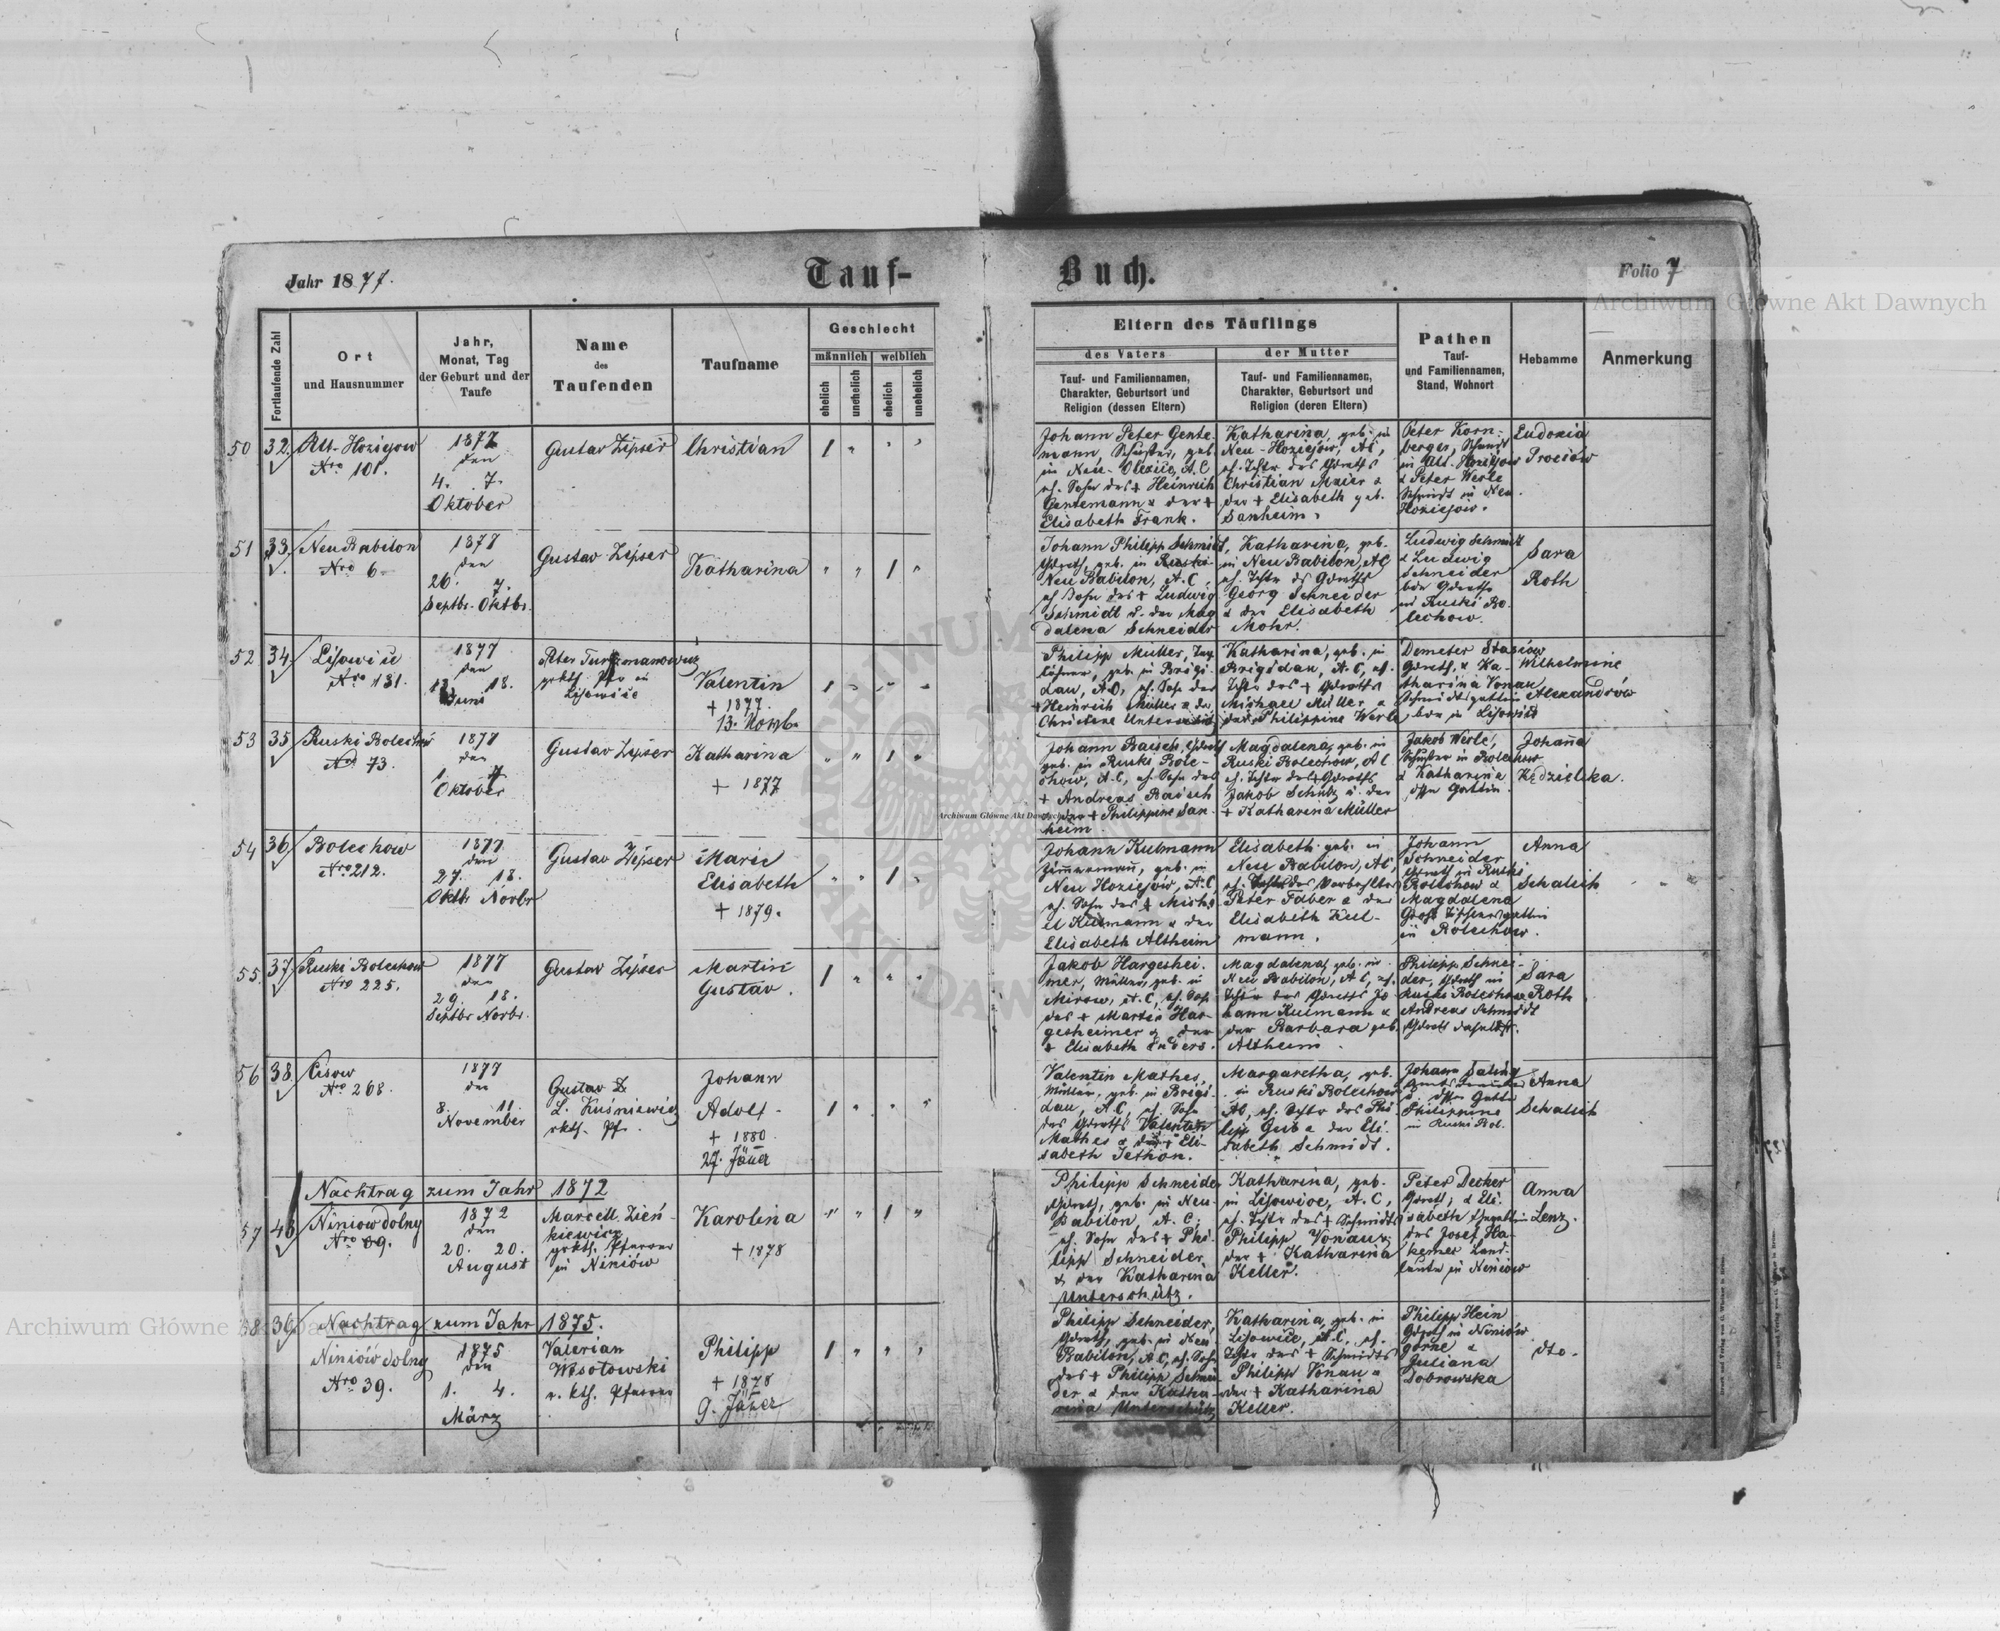 Jahr 1877.
Tauf-
Buch.
Folio 7
Archiwum Główne Akt Dawnych
Fortlaufende Zahl
Ort
und Hausnummer
Jahr,
Monat, Tag
der Geburt und der
Taufe
Name
des
Taufenden
Taufname
Geschlecht
männlich
weiblich
ehelich
unehelich
ehelich
unehelich
Eltern des Täuflings
des Vaters
der Mutter
Tauf- und Familiennamen,
Charakter, Geburtsort und
Religion (dessen Eltern)
Tauf- und Familiennamen,
Charakter, Geburtsort und
Religion (deren Eltern)
Pathen
Tauf-
und Familiennamen,
Stand, Wohnort
Hebamme
Anmerkung
50
32.
Alt-Hoziejow
Nro 101.
1877
den
4. 7.
Oktober
Gustav Zipser
Christian
Johann Peter Gente-
mann, Schuster, geb.
in Neu-Olexice, A.C
eh. Sohn des + Heinrich
Gentemann & der +
Elisabeth Frank.
Katharina, geb. in
Neu-Hoziejów, AC,
eh. Tchtr des Gdrths
Christian Maier &
der + Elisabeth geb.
Sanheim.
Peter Korn-
berger, Schmidt
in Alt-Hoziejow
& Peter Werle
Schmidt in Neu
Hoziejow.
Eudoxia
Prociów
51
33.
Neu Babilon
Nro 6.
1877
den
26. 7.
Septbr. Oktbr.
Gustav Zipser
Katharina
Johann Philipp Schmidt,
Gdrth, geb. in
Neu Babilon, A.C,
eh Sohn des + Ludwig
Schmidt u. der Mag
dalena Schneider
Katharina, geb.
in Neu Babilon, AC
eh. Tchtr ds Gdrths
Georg Schneider
& der Elisabeth
Mohr.
Ludwig Schmidt
& Ludwig
Schneider
bde Gdrths
in Ruski Bo-
lechow.
Sara
Roth
52
34.
Lisowice
Nro 131.
1877
den
18.
Juni
Peter Turzmanowicz
grkth. Pfr in
Lisowice
Valentin
+ 1877
13. Novb.
Philipp Müller, Tag
löhner, geb. in Brigi-
dau, A.C, eh. Sohn des
+ Heinrich Müller & der
Christine Unterschütz
Katharina, geb. in
Brigidau, A.C, eh.
Tchtr des + Gdrths
Michael Müller &
der Philippine Werle
Demeter Stasiów
Gdrth. & Ka-
tharina Vonau
Schmidtsgattin
, bde in Lisowice
Wilhelmine
Alexandrów
53
35.
Ruski Bolechów
Nro 73.
1877
den
1 7
Oktober
Gustav Zipser
Katharina
+ 1877
Johann Raisch, Gdrth
geb. in Ruski Bole-
chów, A.C, eh. Sohn des
+ Andreas Raisch
& der + Philippine San-
heim
Magdalena, geb. in
Ruski Bolechow, AC
eh. Tchtr des + Gdrths
Jakob Schütz u. der
+ Katharina Müller
Jakob Werle,
Schuster in Bolechow
& Katharina
dssn Gattin
Johanna
Kędzielska.
54
36.
Bolechow
Nro 212.
1877
den
27. 18.
Oktbr Novbr
Gustav Zipser
Marie
Elisabeth
+ 1879.
Johann Kulmann
Zimmermann, geb. in
Neu Hoziejów, A.C,
eh. Sohn des + Micha-
el Kulmann & der
Elisabeth Altheim
Elisabeth geb. in
Neu Babilon, AC,
eh. Tchtr des Vorstehers
Peter Faber & der
Elisabeth Kul-
mann.
Johann
Schneider
Gdrth in Ruski
Bolechow &
Magdalena
Groß Tischlersgattin
in Bolechow.
Anna
Schalich
55.
37.
Ruski Bolechow
Nro 225.
1877
den
29. 18.
Septbr Novbr.
Gustav Zipser
Martin
Gustav.
Jakob Hargeshei-
mer, Müller, geb. in
Mirow, A.C, eh. Sohn
des + Martin Har-
gesheimer & der
+ Elisabeth Enders.
Magdalena, geb. in
Neu Babilon, A.C, eh.
Tchtr des Gdrths Jo
hann Kulmann &
der Barbara geb.
Altheim.
Philipp Schnei-
der, Gdrth in
Ruski Bolechow
Andreas Schmidt
Gdrth daselbst.
Sara
Roth
56
38.
Cisow
Nro 268.
1877
den
8. 11.
November
Gustav Z
L. Kuśniewicz
rkth. Pfr.
Johann
Adolf
+ 1880.
27. Jäner
Valentin Mathes,
Müller, geb. in Brigi-
dau, A.C, eh. Sohn
des Gdrths Valentin
Mathes & der + Eli-
sabeth Jethon.
Margaretha, geb.
in Ruski Bolechow
AC, eh. Tchtr des Phi-
lipp Gub & der Eli-
sabeth Schmidt.
Johann Saling
& dssn Gattin
Philippine
in Ruski Bol.
Anna
Schalich
Nachtrag zum Jahr 1872
57
Niniow dolny
Nro 89.
1872
den
20. 20.
August
Marcell Zień-
kiewicz
grkth. Pfarrer
in Niniów
Karolina
+ 1878
Philipp Schneider
Gdrth, geb. in Neu-
Babilon, A.C,
eh. Sohn des + Phi-
lipp Schneider
& der Katharina
Unterschütz.
Katharina, geb.
in Lisowice, A.C,
eh. Tchtr des + Schmidts
Philipp Vonau &
der + Katharina
Keller.
Peter Decker
Gdrth, & Eli-
sabeth Ehegattin
des Josef Ha-
Land-
leute in Niniow
Anna
Lenz.
58
39.
Nachtrag zum Jahr 1875.
Niniów dolny
Nro 39.
1875
den
1. 4.
März
Valerian
Wesołowski
r. kth. Pfarrer
Philipp
+ 1878
9. Jäner
Philipp Schneider,
Gdrth, geb. in Neu-
Babilon, A.C, eh. Sohn
des + Philipp Schnei-
der & der Katha-
rina Unterschütz
Katharina, geb. in
Lisowice, A.C, eh.
Tchtr des + Schmidts
Philipp Vonau &
der + Katharina
Keller.
Philipp Hein
Gdrth in Niniów
górne &
Juliana
Dobrowska
dto.
Archiwum Główne Akt Dawnych
Archiwum Główne Akt Dawnych
ARCHIWUM
AKT DAWN